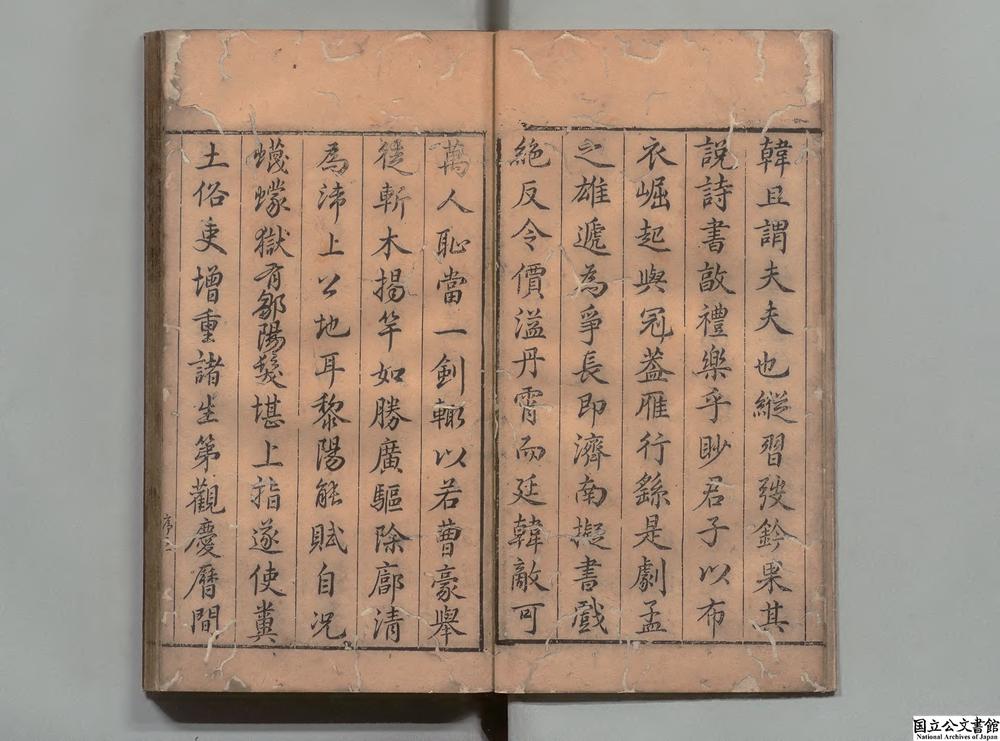 韓且謂夫夫也縱習彀鈐果其
說詩書敨禮樂乎眇君子以布
衣崛起與冠蓋雁行繇是劇孟
之雄遞為爭長即濟南擬書戲
絕反令價溢丹霄而廷韓敵可
萬人恥當一劍輙以若曹豪舉
從斬木揭竿如勝廣驅除廓清
為沛上公地耳黎陽能賦自況
蠛蠓獄有鄒陽髮堪上指遂使糞
土俗吏增重諸生第觀慶曆間
序二
国立公文書館
National Archives of Japan